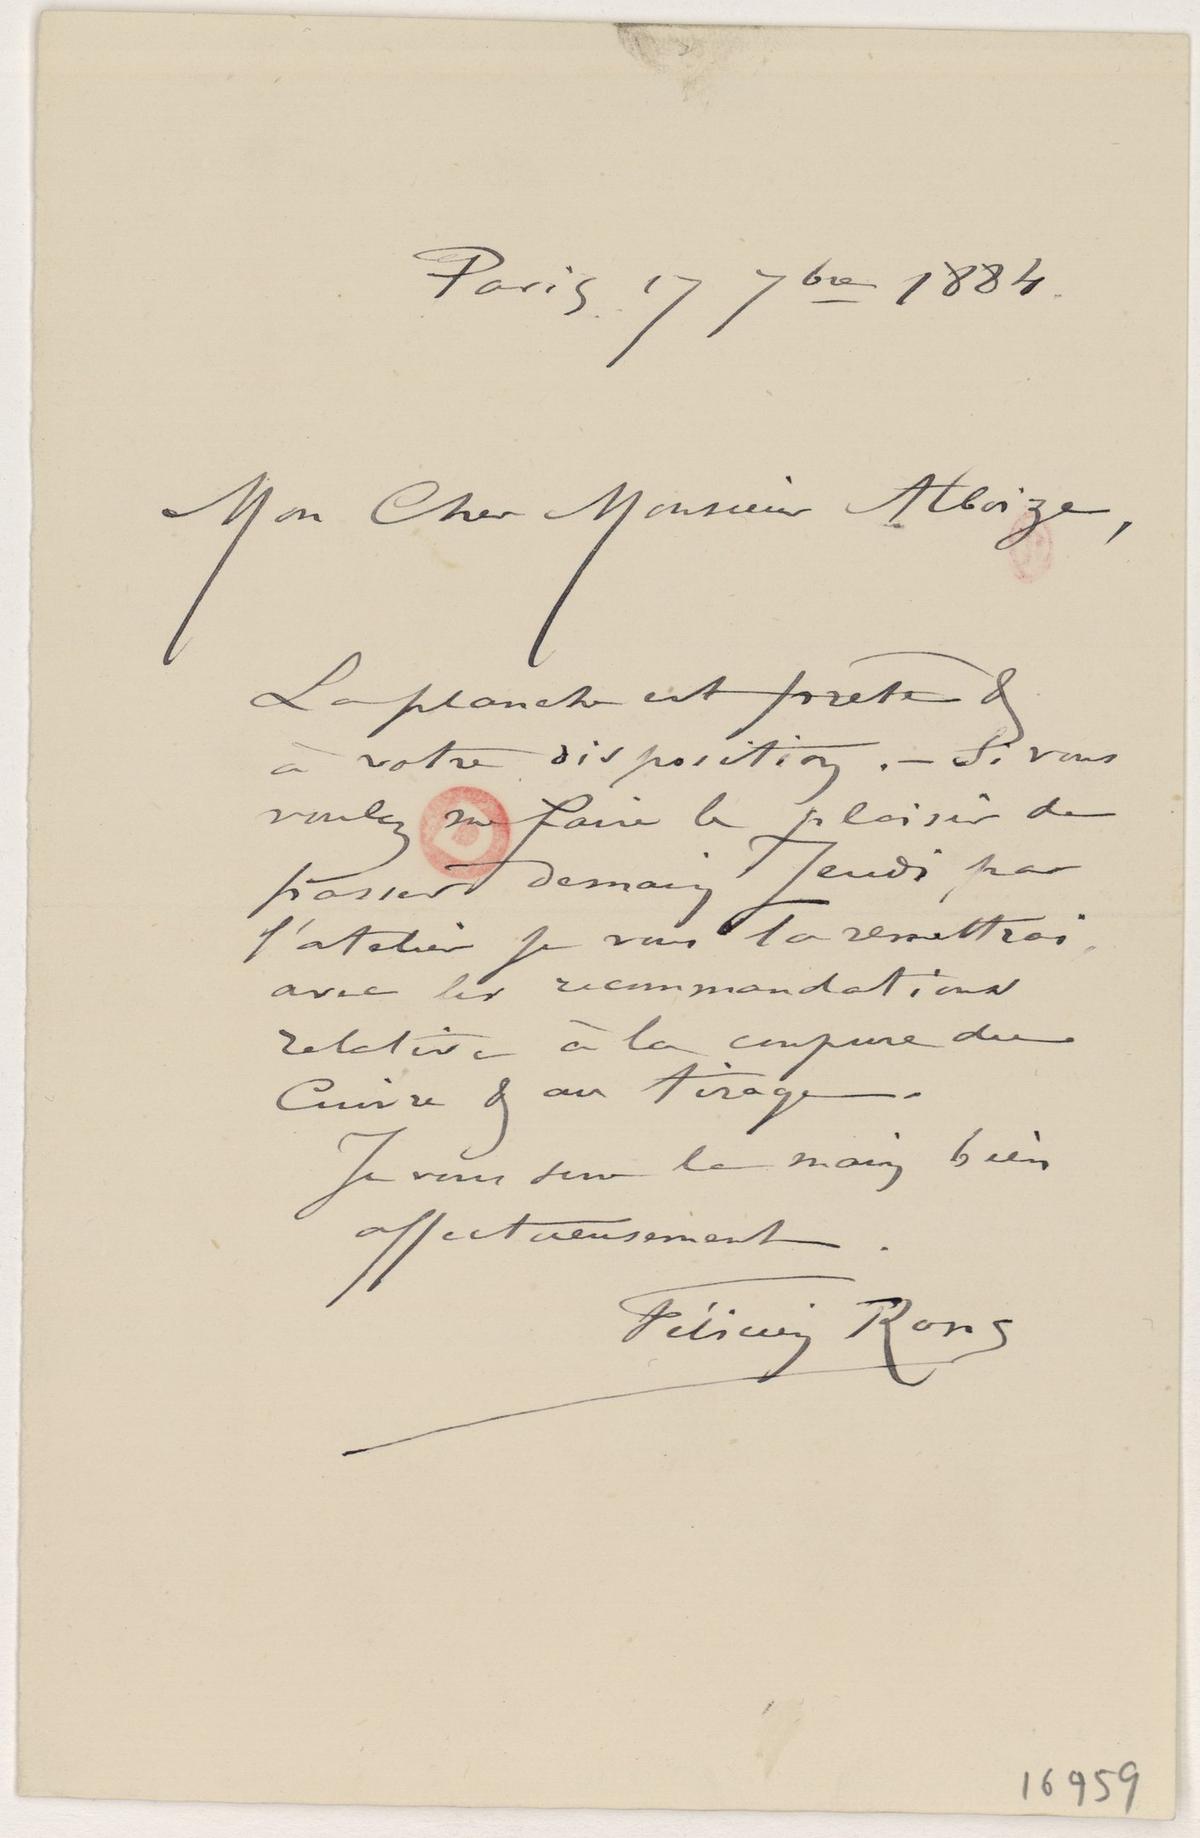 Paris 17 7bre 1884.
Mon Cher Monsieur Alboize,
La planche est prête &
à votre disposition. — Si vous
voulez me faire le plaisir de
passer demain Jeudi par
l'atelier je vous la remettrai
avec les recommandations
relative à la coupure du
Cuivre & au tirage.
Je vous serre la main bien
affectueusement.
Félicien Rops
16959